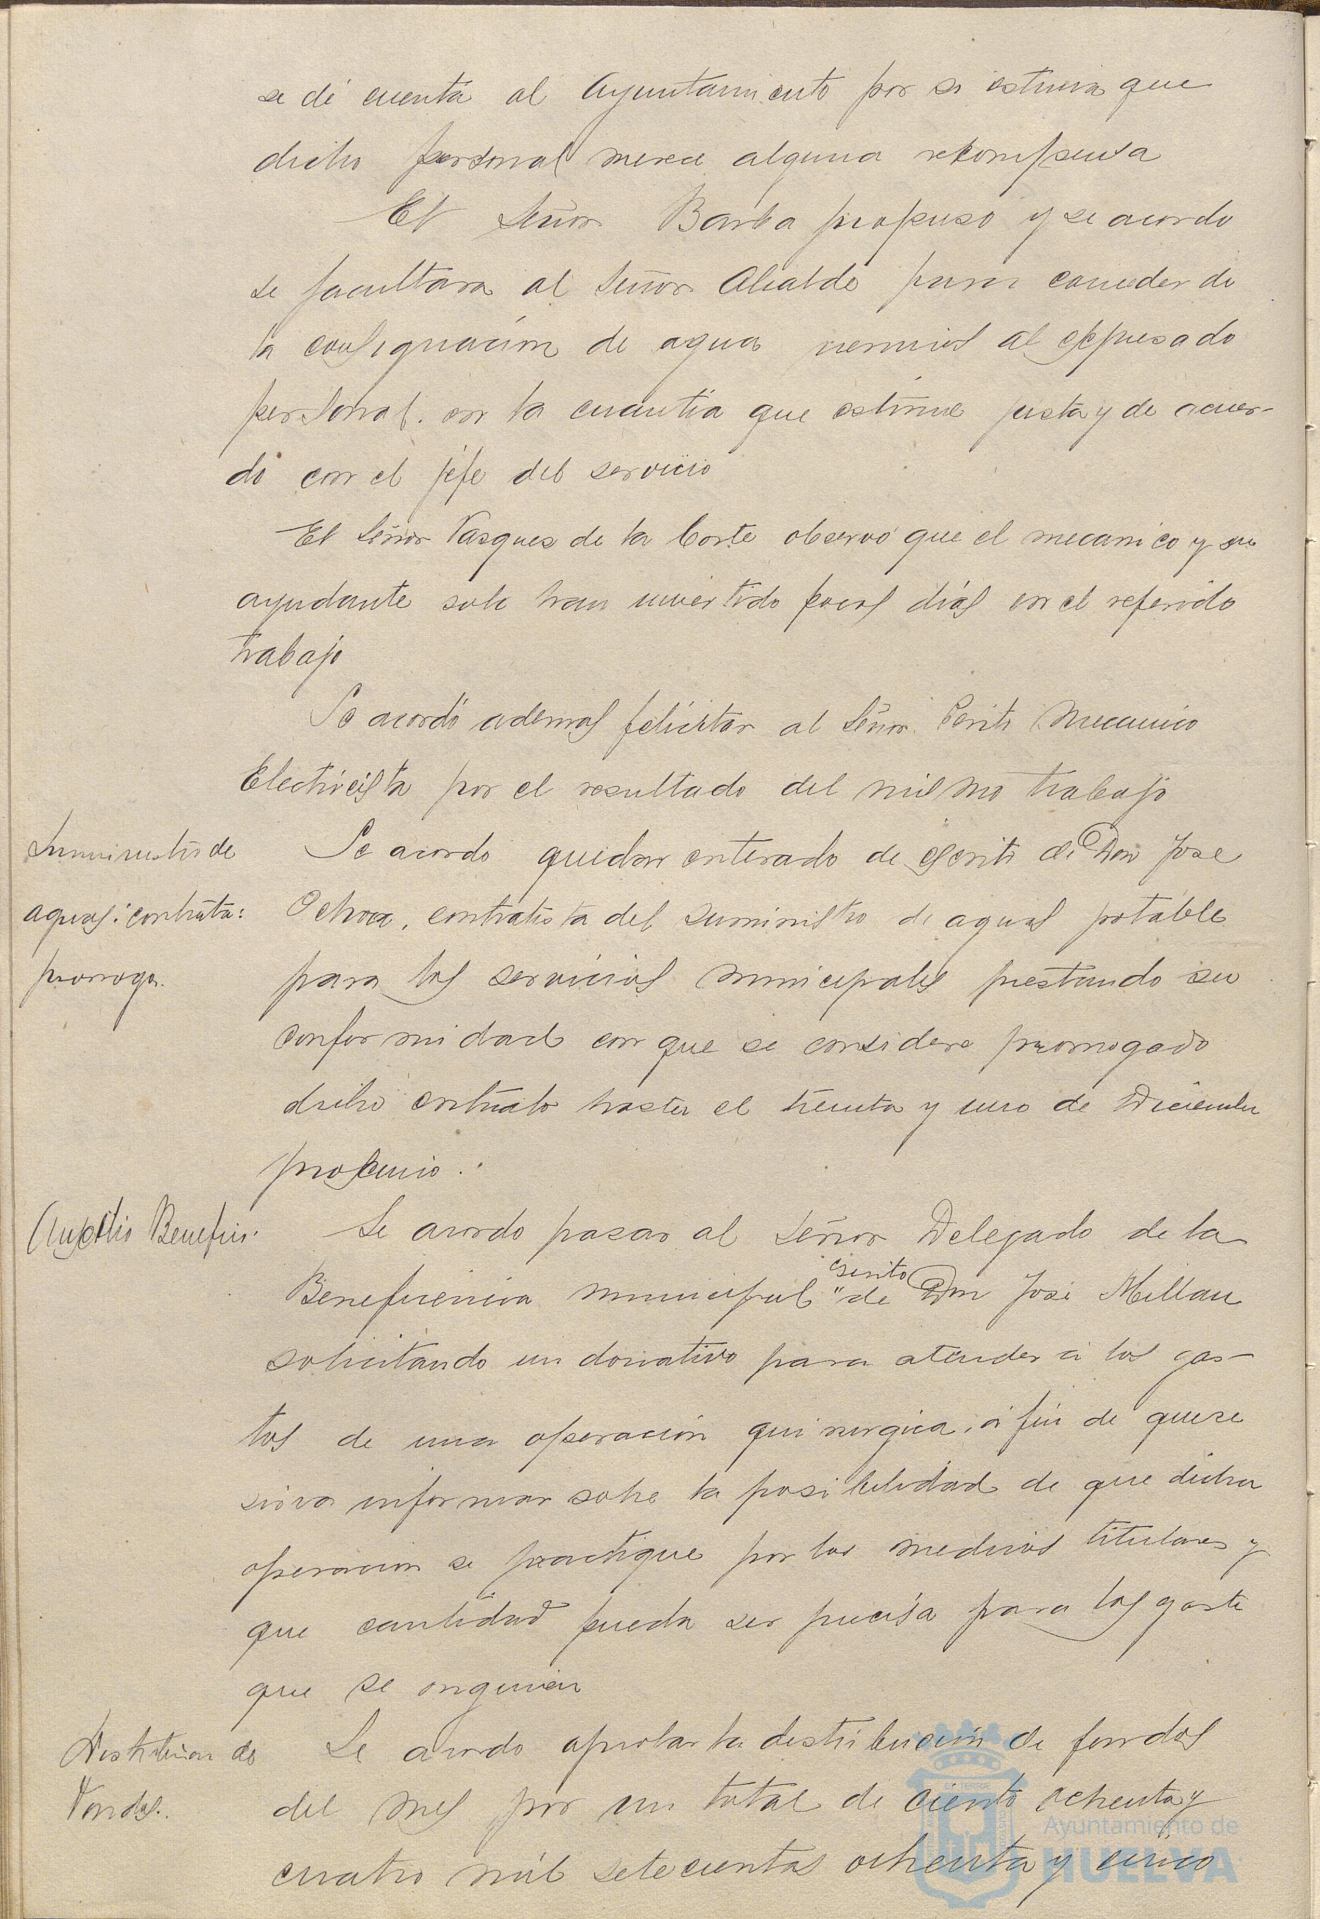 se dé cuenta al Ayuntamiento por si estima que
dicho personal merece alguna recompensa
El Señor Barba propuso y se acordo
se facultara al Señor Alcalde para conceder de
la consignación de agua premios al expresado
personal. en la cuantia que estime justa y de acuer-
do con el jefe del servicio
El Señor Vasquez de la Corte observó que el mecanico y su
ayudante solo han invertido pocos dias en el referido
trabajo
Se acordó ademas felicitar al Señor Perito Mecanico
Electricista por el resultado del mismo trabajo
Suministro de
aguas: contrata:
prorroga.
Se acordo quedar enterado de escrito de Don Jose
Ochoa, contratista del suministro de aguas potable
para los servicios municipales prestando su
conformidad con que se considere prorrogado
dicho contrato hasta el treinta y uno de Diciembre
proximo.
Auxilio Benefico.
Se acordo pasar al Señor Delegado de la
Beneficencia municipal "escrito de Don José Millan
solicitando un donativo para atender a los gas-
tos de una operación quirurgica, a fin de que se
sirva informar sobre la posibilidad de que dicha
operacion se practique por los medicos titulares y
que cantidad pueda ser precisa para los gasto
que se originen
Distribucion de
Fondos.
Se acordo aprobar la distribución de fondos
del mes por un total de ciento ochenta y
cuatro mil setecientas ochenta y cinco
Ayuntamiento de
HUELVA